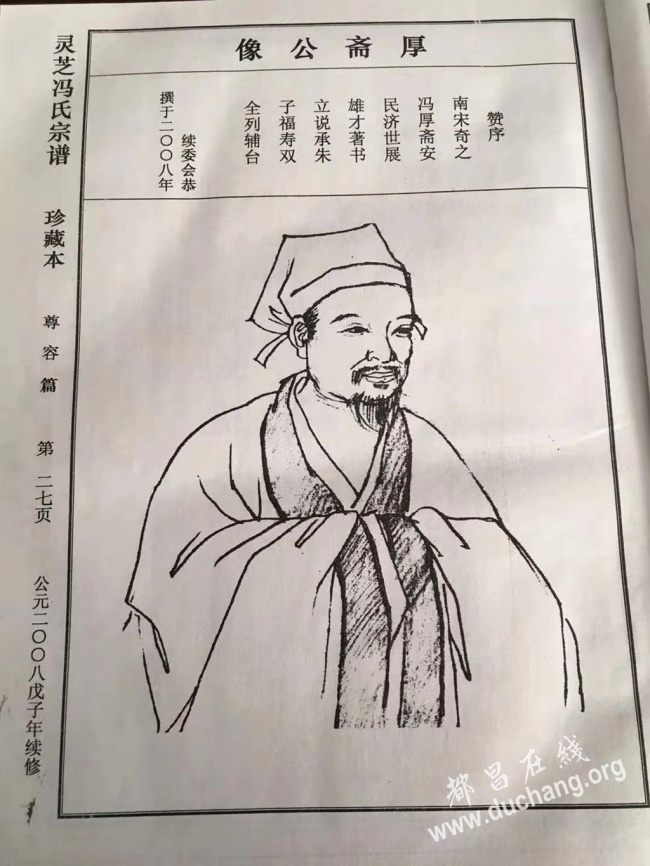 厚斋公像
赞序
南宋奇之
冯厚斋安
民济世展
雄才著书
立说承朱
子福寿双
全列辅台
续委会恭
撰于二〇〇八年
灵芝冯氏宗谱 珍藏本 尊容篇 第二七页 公元二〇〇八戊子年续修
都昌在线
www.duchang.org